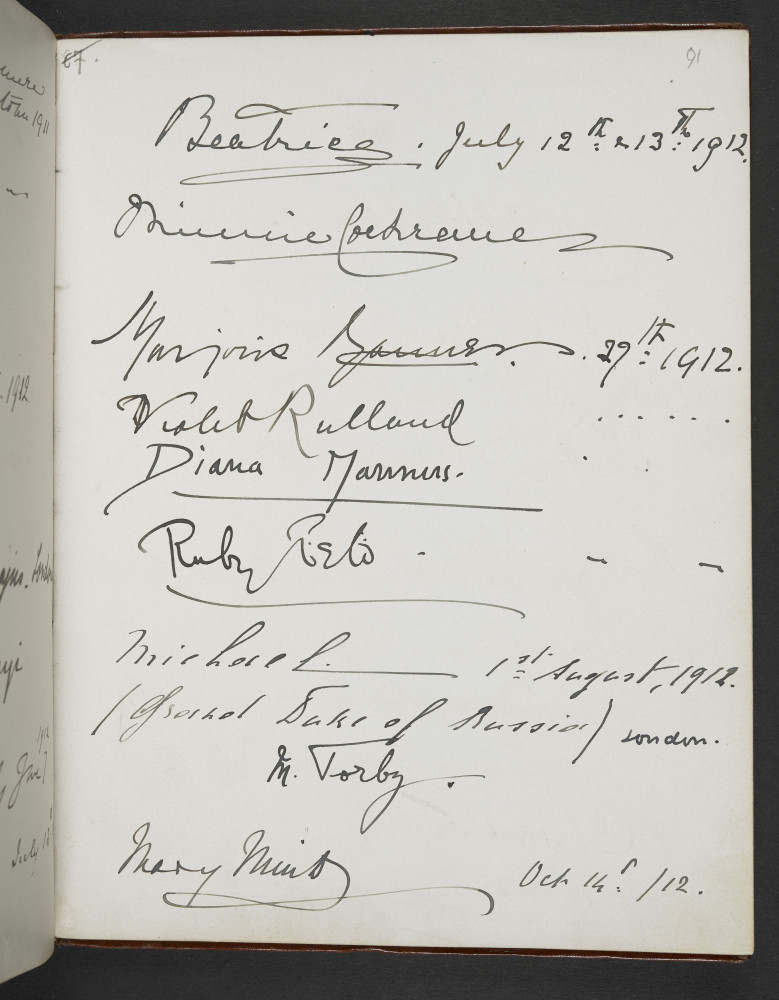 87.
91
Beatrice. July 12th & 13th 1912.
Minnie Cochrane
Marjorie Manners. 29th 1912.
Violet Rutland
Diana Manners.
Ruby
Michael. 1st August, 1912.
(Grand Duke of Russia) London.
M. Torby.
Mary Minto Oct 14th /12.
1911
1912